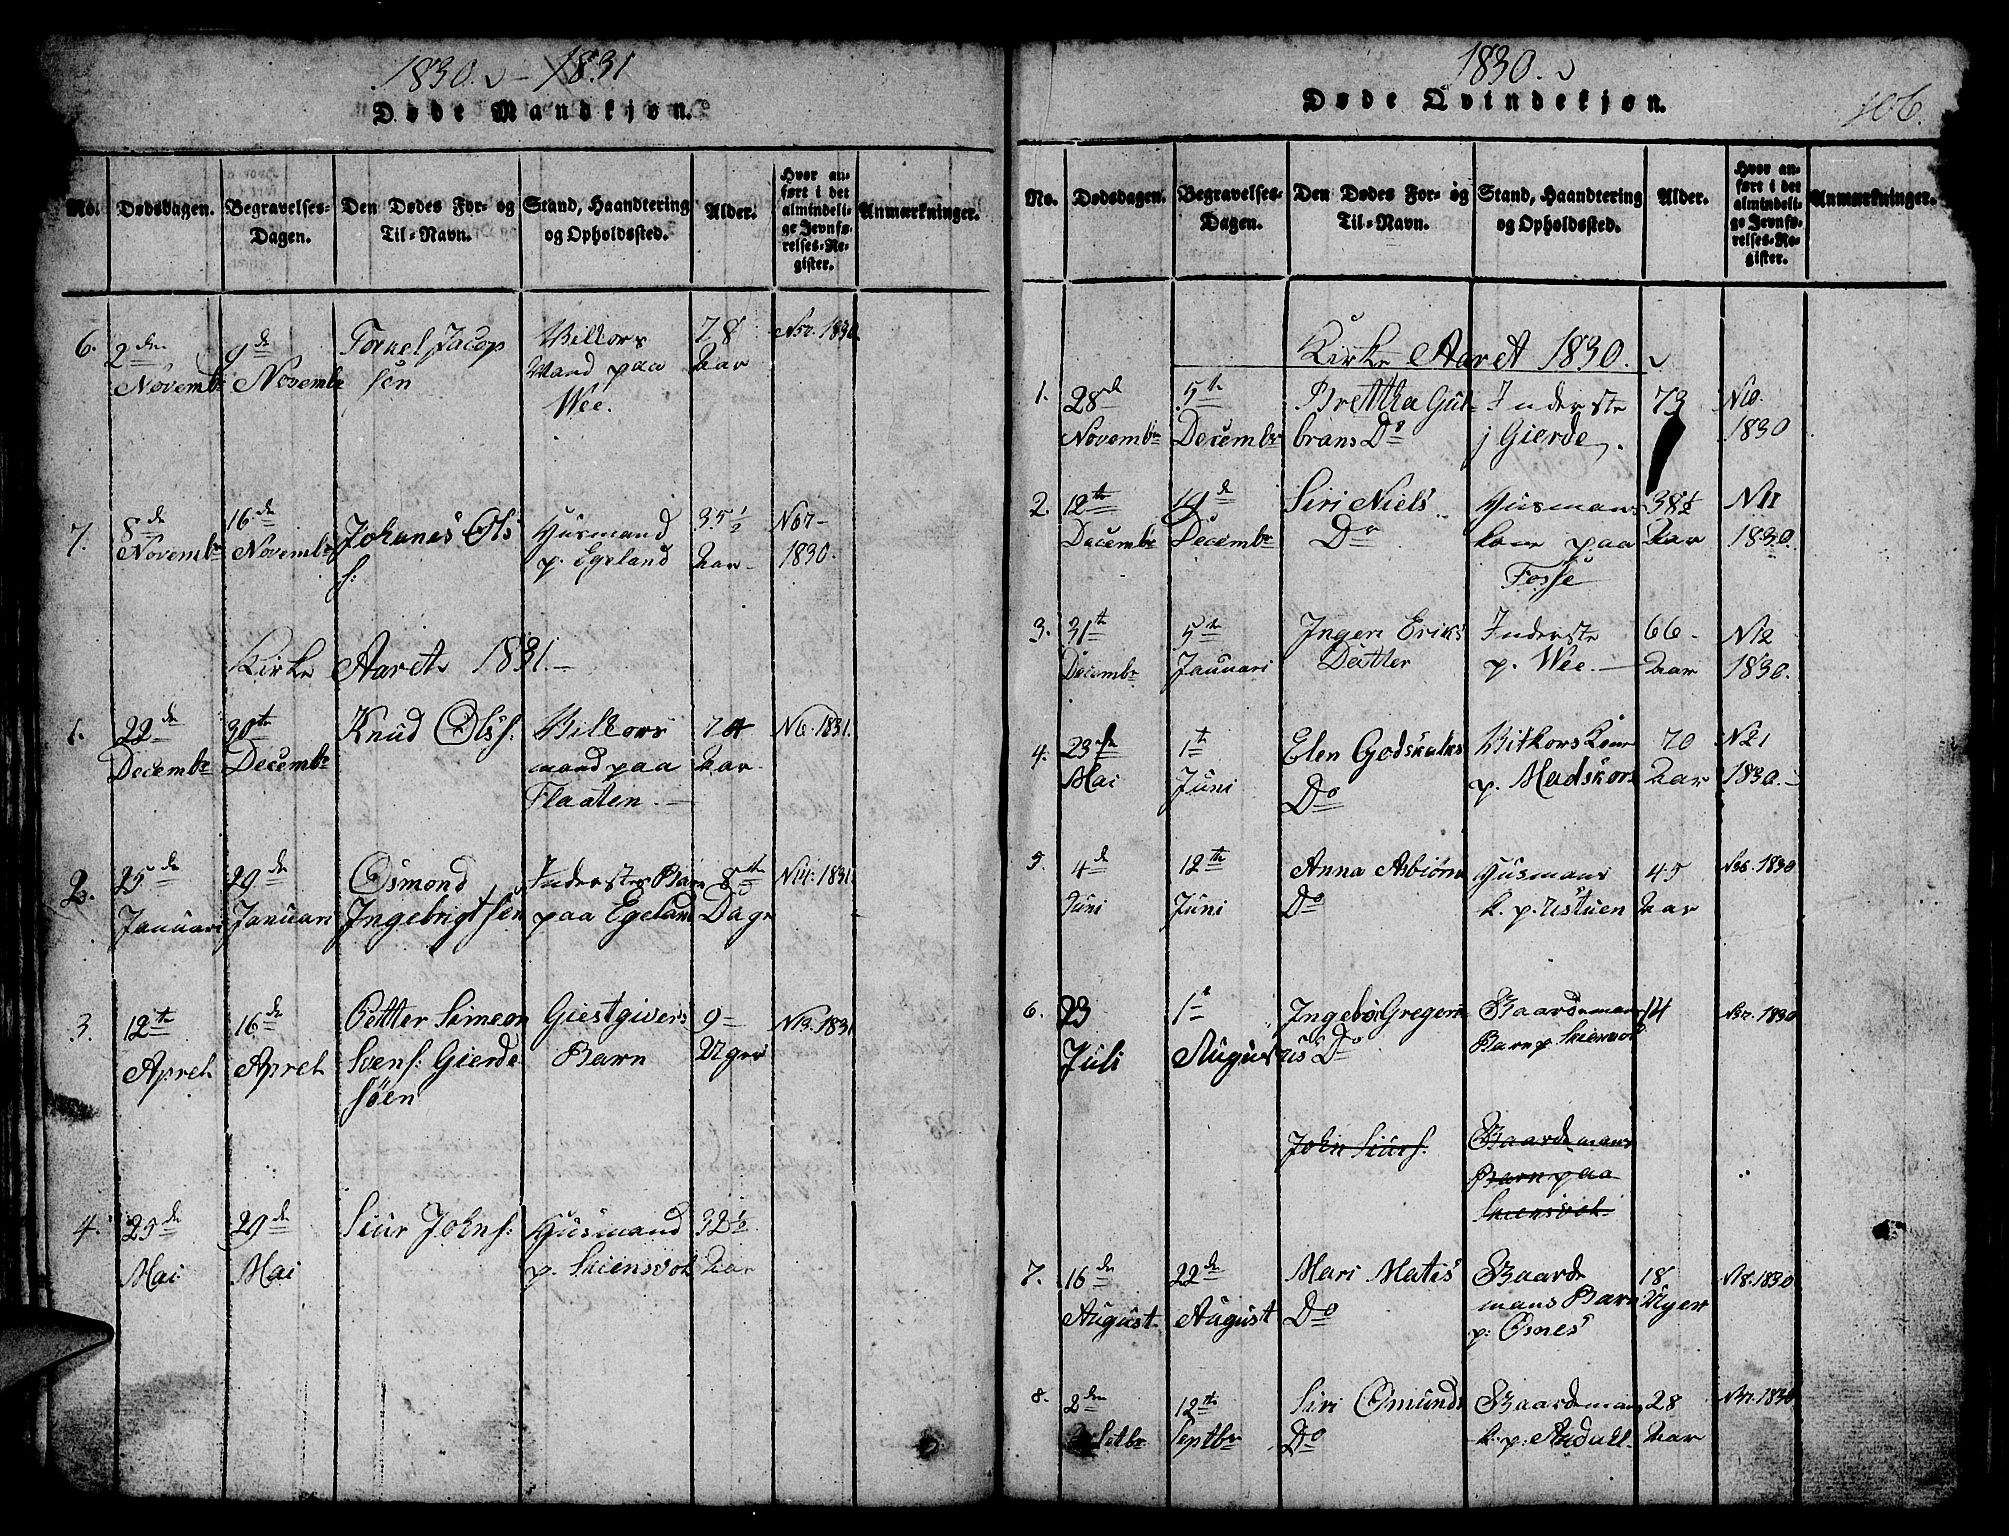 1830. - 1831
Døde Mandkjøn.
No.
Dødsdagen.
Begravelses-
Dagen.
Den Dødes For- og
Til-Navn.
Stand, Haandtering
og Opholdssted.
Alder.
Hvor an-
ført i det
almindeli-
ge Jevnfø-
relses-Re-
gister.
Anmærkninger.
6.
2den
Novembr
9de
Novembr
Torkel Jacop
sen
Wee.
78
Aar
1830
7.
8de
Novembr
16de
Novembr
Johanes Ols
s:
Husmand
p. Egeland
35½
Aar
No 7
1830.
Kirke Aaret 1831.
1.
22de
Decembr
30te
Decembr
Knud Olss:
mand paa
Flaaten.
74
Aar
No 6. 1831.
2.
25de
Januari
29de
Januari
Osmond
Ingebrigtsen
Inderstes Barn
paa Egeland
8te
Dage
1831
3.
12te
Aprel
16de
Aprel
Pettter Simeon
Svens: Gierde
søen
Giestgivers
Barn
9
Uger
N13. 1831
4.
29de
Mai
Siur Johns:
Husmand
p. Skiensvol
32½
Aar
1830.
Døde Qvindekjøn.
106.
No.
Dødsdagen.
Begravelses-
Dagen.
Den Dødes For- og
Til-Navn.
Stand, Haandtering
og Opholdssted.
Alder.
Hvor an-
ført i det
almindeli-
ge Jevnfø-
relses-Re-
gister.
Anmærkninger.
Kirke Aaret 1830.
1.
28de
Novembr
5te
Decembr
Brettha Gul-
brans Do
Inderste
j Gierde.
73
No.
1830
2.
12te
Decembr
19de
Decembr
Siri Niels
Do
Husmans
kone paa
Fosse
38½
Aar
N11
1830.
3.
31te
Decembr
5te
Januari
Ingeri Eriks
Datter
Inderste
p. Wee.
66
Aar
N12
1830.
4.
Mai
1te
Juni
Elen Godskalks
Do
p. Madskors
70
Aar
N21
1830.
5.
4de
Juni
12te
Juni
Anna Asbiørns
Do
Husmans
k. p. Ustuen
45
Aar
1830
6.
23
Juli
1te
August
Ingebor Gregori
us Do
Gaardemans
Barn p. Skiensvol
14
1830
John Siurs:
Gaardemans
Barn paa
Skiensvol.
7.
16de
August
22de
August
Mari Mates
Do
Gaarde
mans Barn
p: Osnes
18
Uger
1830
8.
2den
Setbr
12te
Septbr
Siri Osmunds
Do
Gaardemans
k. p. Aadall
28
Aar
1830